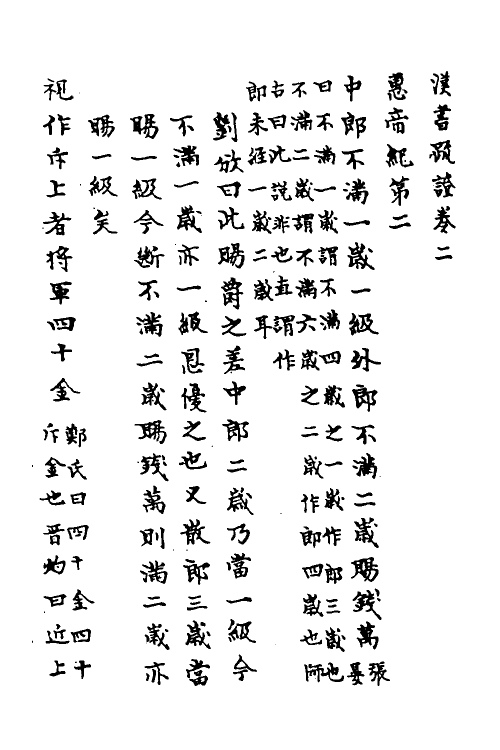 漢書疏證卷二
惠帝紀第二
中郎不滿一歲一級外郎不滿二歲賜錢萬張晏
曰不滿一歲謂不滿四歲之一歲作郎三歲也
不滿二歲謂不滿六歲之二歲作郎四歲也師
古曰此說非也直謂作
郎未經一歲二歲耳
劉攽曰此賜爵之差中郎二歲乃當一級今
不滿一歲亦一級恩優之也又散郎三歲當
賜一級今斷不滿二歲賜錢萬則滿二歲亦
賜一級矣
視作斥上者將軍四十金
鄭氏曰四十金四十
斤金也晉灼曰近上